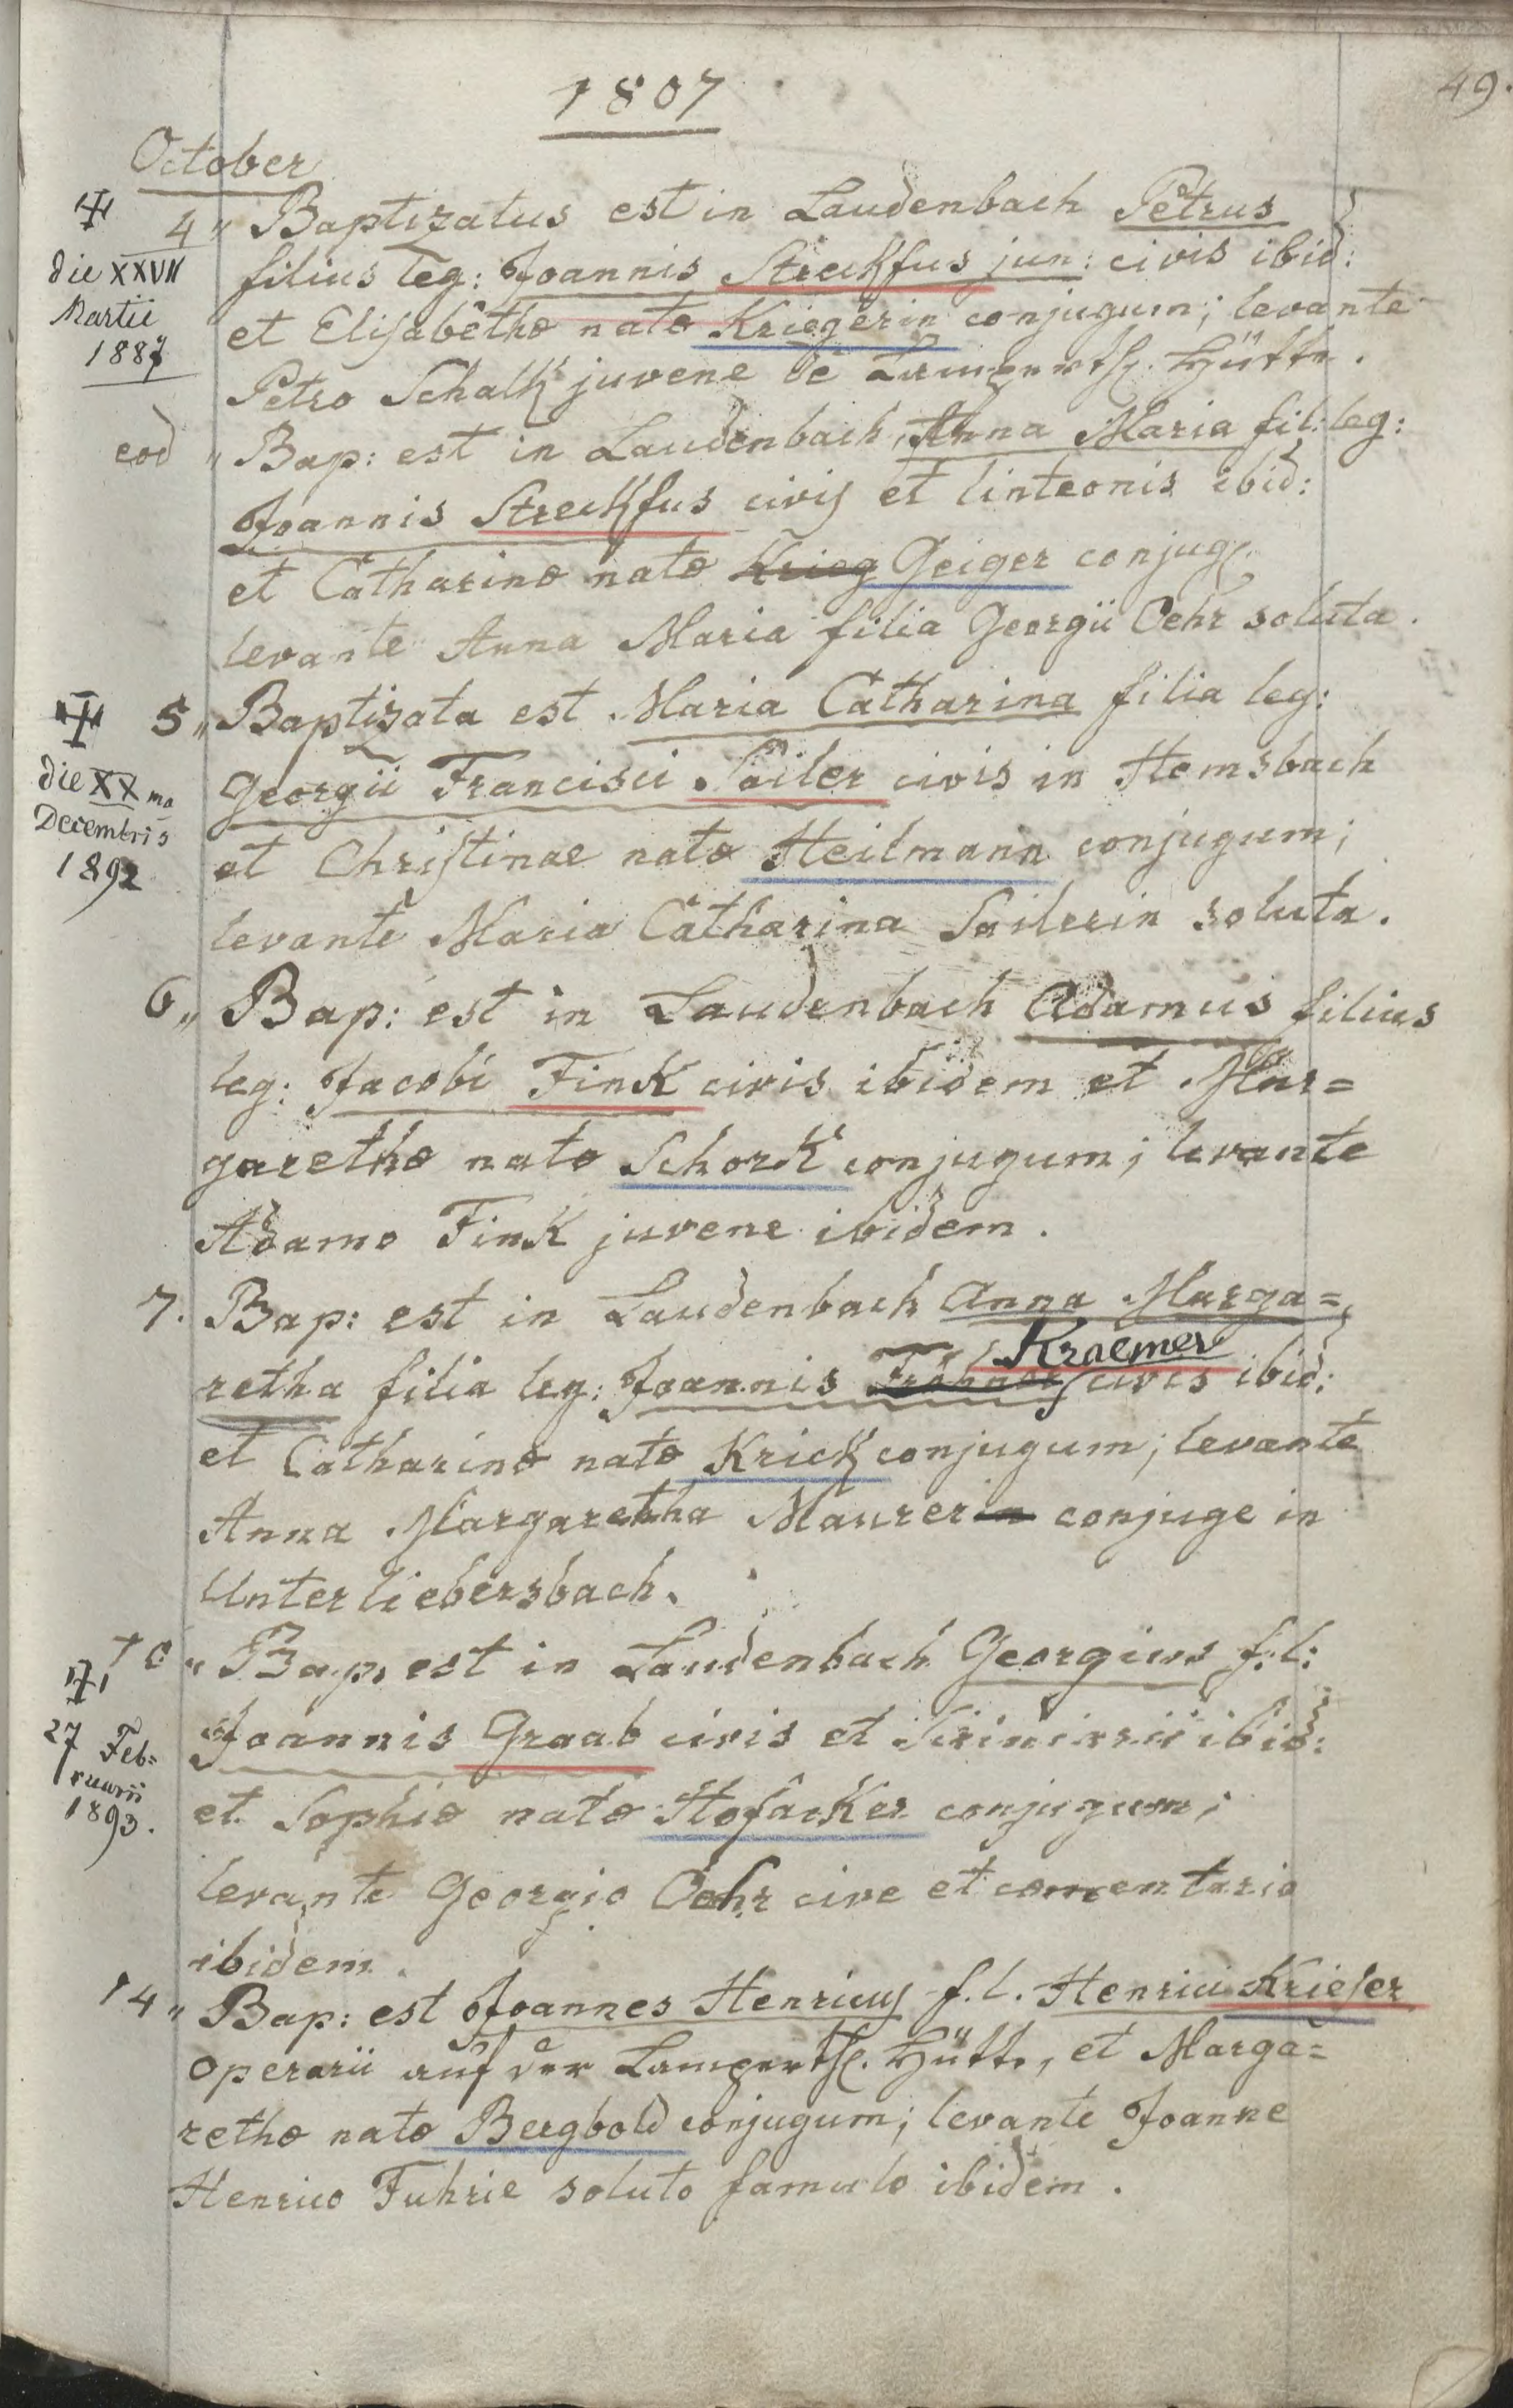 49.
1807
October
4 „ Baptizatus est in Laudenbach Petrus
☩
die XXVII
Martii
1887
filius leg: Joannis Streckfus jun: civis ibid:
et Elisabethæ natæ Kriegerin conjugum; levante
Petro Schalk juvene de Lampertsh. Hütte.
eod „ Bap: est in Laudenbach, Anna Maria fil: leg:
Joannis Streckfus civis et linteonis ibid:
et Catharinæ natæ Krieg Geiger conjug.
levante Anna Maria filia Georgii Oehr soluta.
5 „ Baptizata est Maria Catharina filia leg:
☩
die XXma
Decembris
1892
Georgii Francisci Sailer civis in Hemsbach
et Christinae natæ Heilmann conjugum;
levante Maria Catharina Sailerin soluta.
6 „ Bap: est in Laudenbach Adamus filius
leg: Jacobi Fink civis ibidem et Mar=
garethæ natæ Schork conjugum; levante
Adamo Fink juvene ibidem.
7. Bap: est in Laudenbach Anna Marga=
Kraemer
retha filia leg: Joannis civis ibid:
et Catharinæ natæ Krick conjugum; levante
Anna Margaretha Maurerin conjuge in
Unterliebersbach.
10 „ Bap: est in Laudenbach Georgius f: l:
☩
27 Feb=
ruarii
1893.
Joannis Graab civis et ibid:
et Sophiæ natæ Hofacker conjugum;
levante Georgio Oehr cive et cementario
ibidem.
14 „ Bap: est Joannes Henricus f. l. Henrici Krieser
operarii auf der Lampertsh. Hütte, et Marga=
rethæ natæ Bergbold conjugum; levante Joanne
Henrico Fuhrie soluto famulo ibidem.